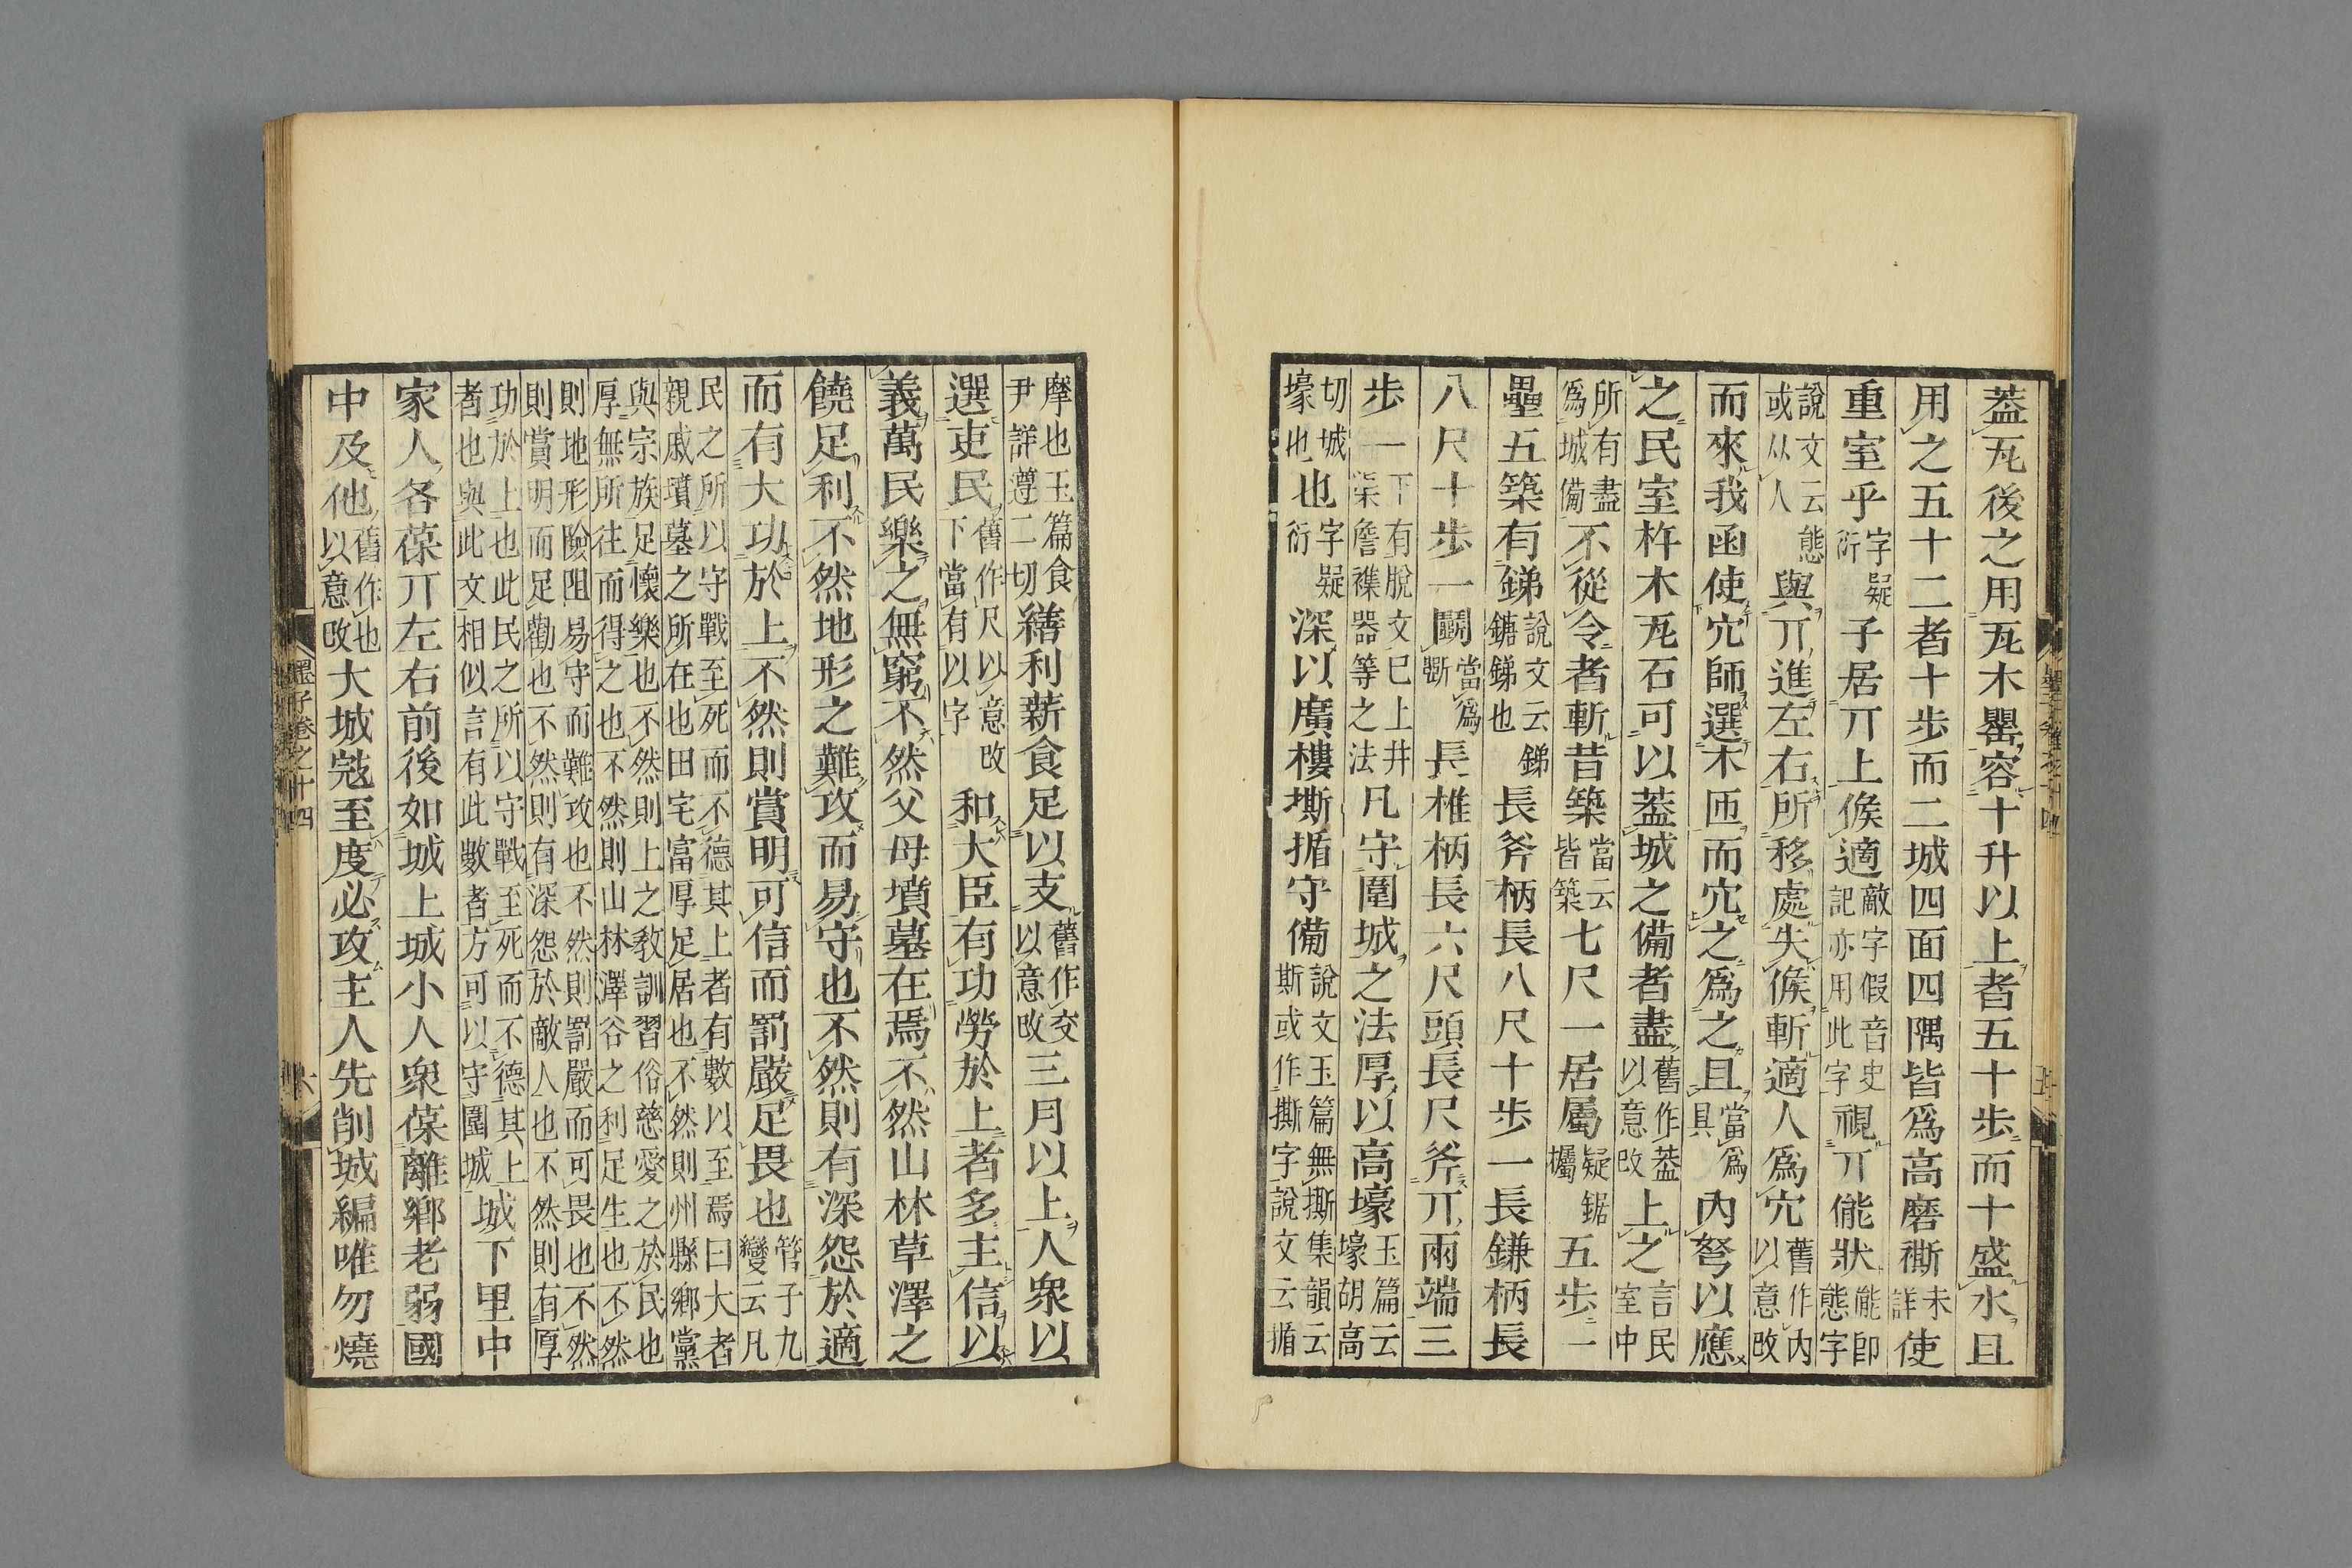 葢瓦後之用瓦木罌容十升以上者五十步而十盛水且
用之五十二者十步而二城四面四隅皆爲高磨㯕未詳使
重室乎字疑衍子居丌上候適敵字假音史記亦用此字視丌㑷狀㑷卽態字
說文云態或从人與丌進左右所移處失候斬適人爲穴舊作內以意改
而來我函使穴師選木匝而穴之爲之且當爲具內弩以應
之民室杵木瓦石可以葢城之備者盡舊作葢以意改上之言民室中
所有盡爲城備不從令者斬昔築當云皆築七尺一居屬疑鋸欘五步一
壘五築有銻說文云銻鎕銻也長斧柄長八尺十步一長鎌柄長
八尺十步一鬭當爲斵長椎柄長六尺頭長尺斧丌兩端三
步一下有脫文已上井渠詹襍器等之法凡守圍城之法厚以高壕玉篇云壕胡高
切城壕也也字疑衍深以廣樓撕揗守備說文玉篇無撕集韻云斯或作撕字說文云揗
摩也玉篇食尹詳遵二切繕利薪食足以支舊作交以意改三月以上人衆以
選吏民舊作尺以意改下當有以字和大臣有功勞於上者多主信以
義萬民樂之無窮不然父母墳墓在焉不然山林草澤之
饒足利不然地形之難攻而易守也不然則有深怨於適
而有大功於上不然則賞明可信而罰嚴足畏也管子九變云凡
民之所以守戰至死而不德其上者有數以至焉曰大者親戚墳墓之所在也田宅富厚足居也不然則州縣鄉黨
與宗族足懷樂也不然則上之敎訓習俗慈愛之於民也厚無所往而得之也不然則山林澤谷之利足生也不然
則地形險阻易守而難攻也不然則罰嚴而可畏也不然則賞明而足勸也不然則有深怨於敵人也不然則有厚
功於上也此民之所以守戰至死而不德其上者也與此文相似言有此數者方可以守圍城城下里中
家人各葆丌左右前後如城上城小人衆葆離鄕老弱國
中及他舊作也以意改大城寇至度必攻主人先削城編唯勿燒
墨子卷之十四
六